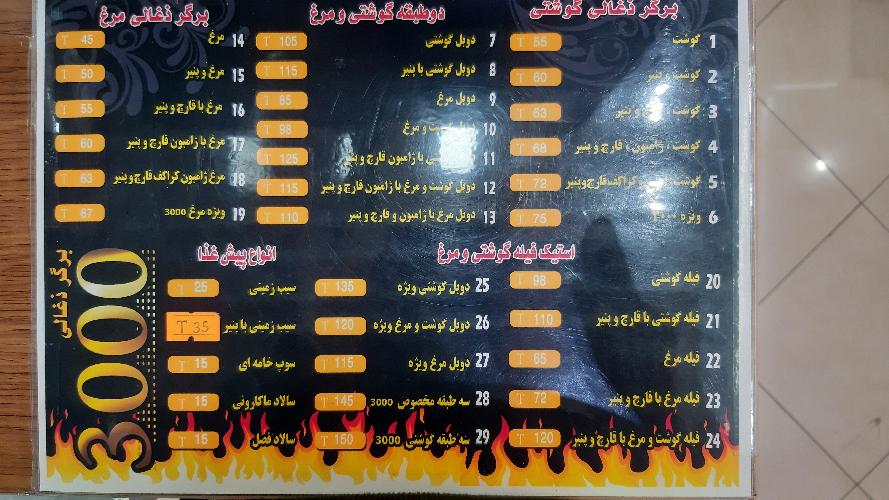 برگر ذغالی گوشتی
1 گوشت T 55
2 گوشت و پنیر T 60
3 گوشت ، و پنیر T 63
4 گوشت ، ژامبون ، قارچ و پنیر T 68
5 گوشت ، کراکف، قارچ و پنیر T 72
6 ویژه T 75
دوطبقه گوشتی و مرغ
7 دوبل گوشتی T 105
8 دوبل گوشتی با پنیر T 115
9 دوبل مرغ T 85
10 دوبل گوشت و مرغ T 98
11 با ژامبون قارچ و پنیر T 125
12 دوبل گوشت و مرغ با ژامبون قارچ و پنیر T 115
13 دوبل مرغ با ژامبون و قارچ و پنیر T 110
برگر ذغالی مرغ
14 مرغ T 45
15 مرغ و پنیر T 50
16 مرغ با قارچ و پنیر T 55
17 مرغ با ژامبون قارچ و پنیر T 60
18 مرغ ژامبون کراکف قارچ و پنیر T 63
19 ویژه مرغ 3000 T 67
استیک فیله گوشتی و مرغ
20 فیله گوشتی T 98
21 فیله گوشتی با قارچ و پنیر T 110
22 فیله مرغ T 65
23 فیله مرغ با قارچ و پنیر T 72
24 فیله گوشت و مرغ با قارچ و پنیر T 120
25 دوبل گوشتی ویژه T 135
26 دوبل گوشت و مرغ ویژه T 120
27 دوبل مرغ ویژه T 115
28 سه طبقه مخصوص 3000 T 145
29 سه طبقه گوشتی 3000 T 150
انواع پیش غذا
سیب زمینی T 25
سیب زمینی با پنیر T 35
سوپ خامه ای T 15
سالاد ماکارونی T 15
سالاد فصل T 15
برگر ذغالی
3000